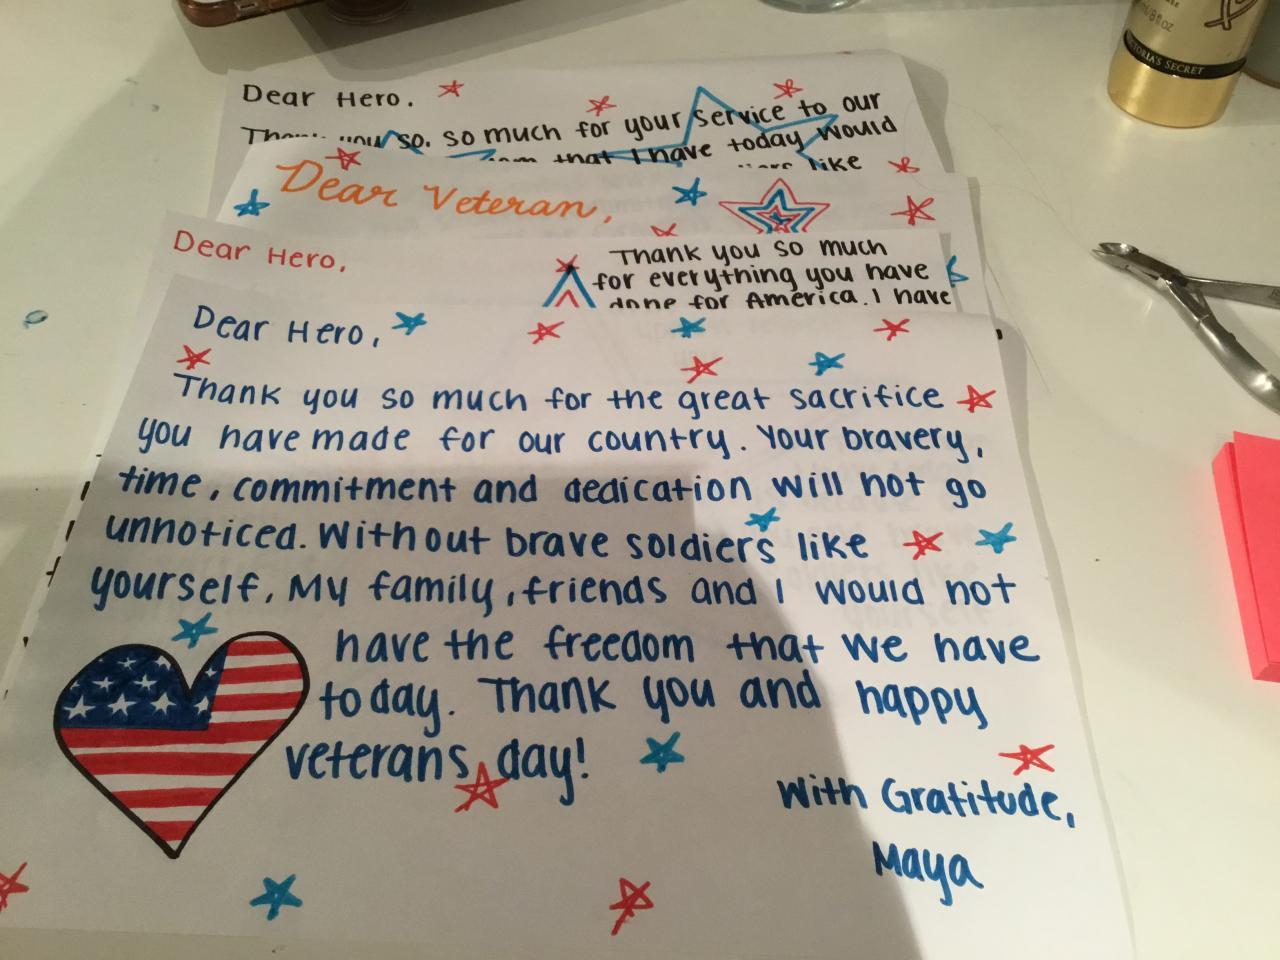 Dear Hero.
Thank you so. so much for your service to our
that I have today would
like
Dear Veteran,
Dear Hero,
Thank you so much
for everything you have
done for America. I have
Dear Hero,
Thank you so much for the great sacrifice
you have made for our country. Your bravery,
time, commitment and dedication will not go
unnoticed. Without brave soldiers like
yourself, My family, friends and I would not
have the freedom that we have
today. Thank you and happy
veterans day!
With Gratitude,
Maya
VICTORIA'S SECRET